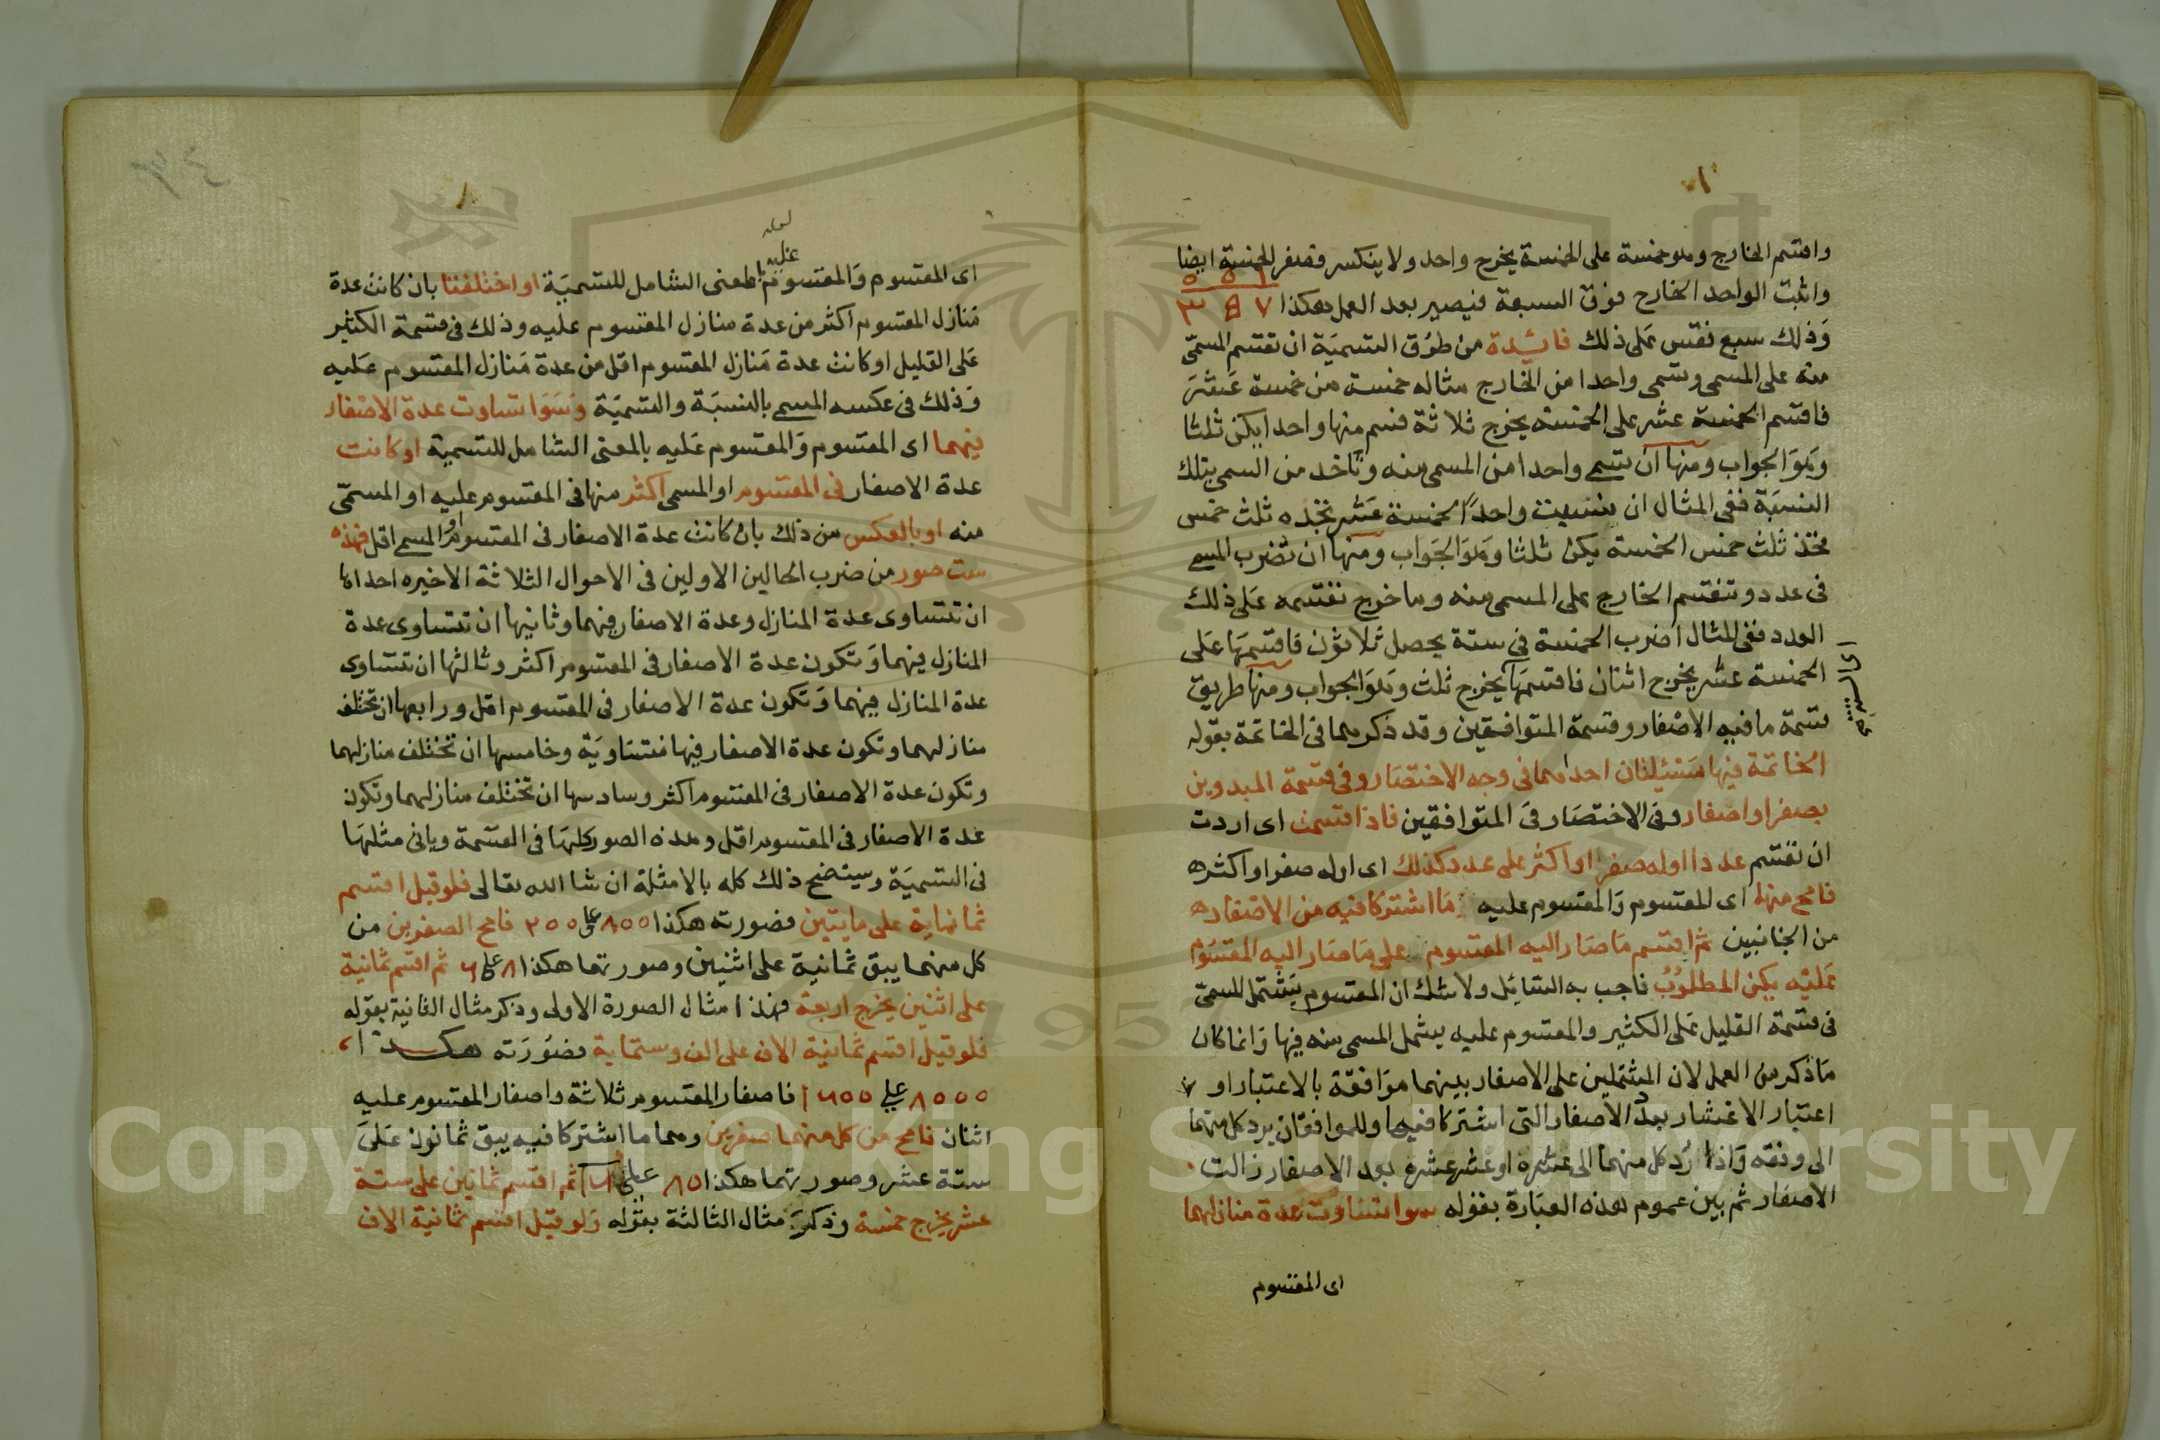 واقسم الخارج وهو خمسة على الخمسة يخرج واحد ولا ينكسر فصفر للخمسة ايضا
واثبت الواحد الخارج فوق السبعة فيصير بعد العمل هكذا
وذلك سبع فقس على ذلك فائدة من طرق التسمية ان تقسم المسمى
منه على المسمى وتسمى واحدا من الخارج مثاله خمسة من خمسة عشر
فاقسم الخمسة عشر على الخمسة يخرج ثلاثة فسم منها واحدا يكن ثلثا
وهو الجواب ومنها ان تسمي واحدا من المسمى منه وتاخذ من المسمى بتلك
النسبة ففى المثال ان نسبت واحدا لخمسة عشر تجده ثلث خمس
فخذ ثلث خمس الخمسة يكن ثلثا وهو الجواب ومنها ان تضرب المسمى
فى عدد وتقسم الخارج على المسمى منه وما خرج تقسمه على ذلك
العدد ففى المثال اضرب الخمسة في ستة يحصل ثلاثون فاقسمها على
الخمسة عشر يخرج اثنان فاقسمها يخرج ثلث وهو الجواب ومنها طريق
قسمة ما فيه الاصفار وقسمة المتوافقين وقد ذكرهما فى الخاتمة بقوله
الخاتمة فيها مسئلتان احداهما فى وجه الاختصار وفى قسمة المبدوين
بصفر او اصفار وفى الاختصار فى المتوافقين فاذا قسمت اى اردت
ان تقسم عددا اوله صفر او اكثر على عدد كذلك اى اوله صفر او اكثر
فامح منها اى المقسوم والمقسوم عليه ما اشتركا فيه من الاصفار
من الجانبين ثم اقسم ما صار اليه المقسوم على ما صار اليه المقسوم
عليه يكن المطلوب فاجب به السائل ولا شك ان المقسوم يشتمل المسمى
فى قسمة القليل على الكثير والمقسوم عليه يشمل المسمى منه فيها وانما كان
ما ذكر من العمل لان المشتملين على الاصفار بينهما موافقة بالاعتبار او
اعتبار الاعشار بعدد الاصفار التى اشتركا فيها والموافقان يرد كل منهما
الى وفقه واذا رد كل منهما الى عشره او عشر عشره بعد الاصفار زالت
الاصفار ثم بين عموم هذه العبارة بقوله سوا تساوت عدة منازلهما
اى المقسوم
اى المقسوم والمقسوم عليه بالمعنى الشامل للتسمية او اختلفتا بان كانت عدة
منازل المقسوم اكثر من عدة منازل المقسوم عليه وذلك فى قسمة الكثير
على القليل او كانت عدة منازل المقسوم اقل من عدة منازل المقسوم عليه
وذلك فى عكسه المسمى بالنسبة والتسمية وسوا تساوت عدة الاصفار
فيهما اى المقسوم والمقسوم عليه بالمعنى الشامل للتسمية او كانت
عدة الاصفار فى المقسوم او المسمى اكثر منها فى المقسوم عليه او المسمى
منه او بالعكس من ذلك بان كانت عدة الاصفار فى المقسوم او المسمى اقل فهذه
ست صور من ضرب الحالين الاولين فى الاحوال الثلاثة الاخيره احداها
ان تتساوى عدة المنازل وعدة الاصفار فيهما وثانيها ان تتساوى عدة
المنازل فيهما وتكون عدة الاصفار فى المقسوم اكثر وثالثها ان تتساوى
عدة المنازل فيهما وتكون عدة الاصفار فى المقسوم اقل ورابعها ان تختلف
منازلهما وتكون عدة الاصفار فيها متساوية وخامسها ان تختلف منازلهما
وتكون عدة الاصفار فى المقسوم اكثر وسادسها ان تختلف منازلهما وتكون
عدة الاصفار فى المقسوم اقل وهذه الصور كلها فى القسمة وياتى مثلها
فى التسمية وسيتضح ذلك كله بالامثلة ان شا الله تعالى فلو قيل اقسم
ثمانماية على مايتين فصورته هكذا ٨٠٠ على ٢٠٠ فامح الصفرين من
كل منهما يبق ثمانية على اثنين وصورتهما هكذا ٨ على ٢ ثم اقسم ثمانية
على اثنين يخرج اربعة فهذا مثال الصورة الاولى وذكر مثال الثانية بقوله
فلو قيل اقسم ثمانية الاف على الف وستماية فصورته هكذا
٨٠٠٠ على ١٦٠٠ فاصفار المقسوم ثلاثة واصفار المقسوم عليه
اثنان فامح من كل منهما صفرين وهما ما اشتركا فيه يبق ثمانون على
ستة عشر وصورتهما هكذا ٨٠ على ١٦ ثم اقسم ثمانين على ستة
عشر يخرج خمسة وذكر مثال الثالثة بقوله ولو قيل اقسم ثمانية الاف
Copyright © King Saud University
1957